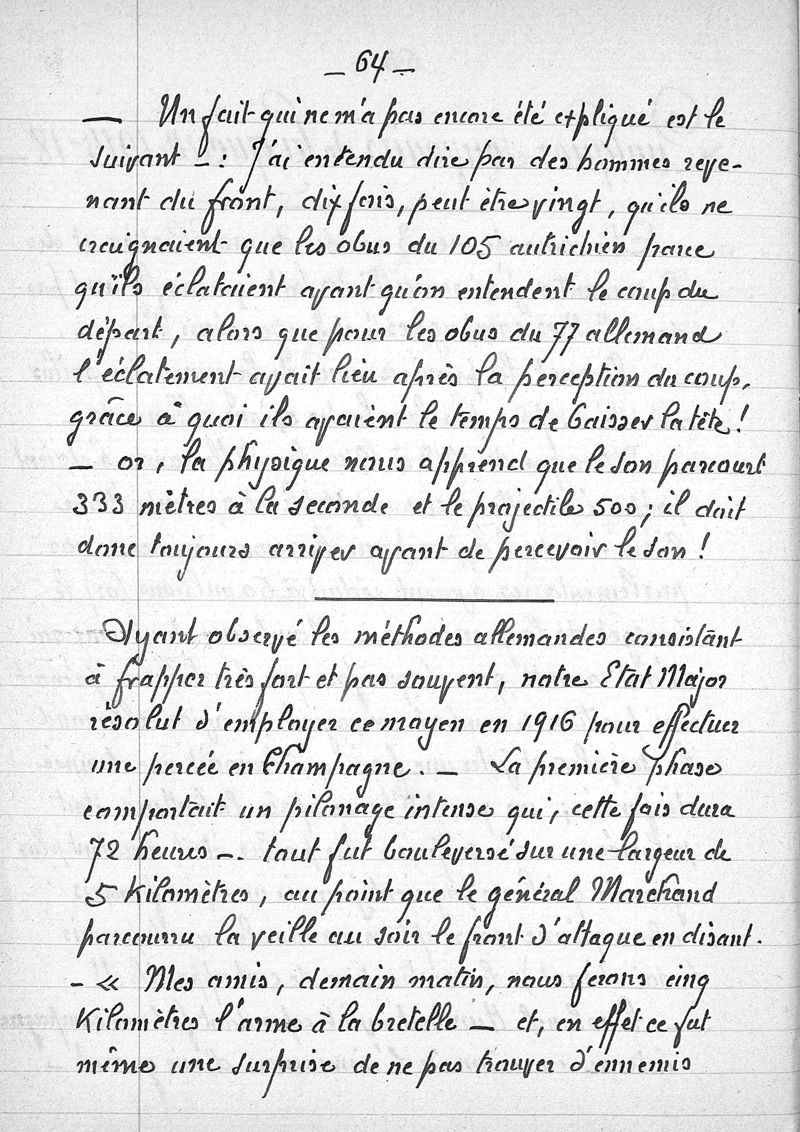 — 64 —
— Un fait qui ne m'a pas encore été expliqué est le
suivant — : J'ai entendu dire par des hommes reve-
nant du front, dix fois, peut être vingt, qu'ils ne
craignaient que les obus du 105 autrichien parce
qu'ils éclataient avant qu'on entendent le coup du
départ, alors que pour les obus du 77 allemand
l'éclatement avait lieu après la perception du coup,
grâce à quoi ils avaient le temps de baisser la tête !
— or, la physique nous apprend que le son parcourt
333 mètres à la seconde et le projectile 500 ; il doit
donc toujours arriver avant de percevoir le son !
Ayant observé les méthodes allemandes consistant
à frapper très fort et pas souvent, notre Etat Major
résolut d'employer ce moyen en 1916 pour effectuer
une percée en Champagne. — La première phase
comportait un pilonage intense qui, cette fois dura
72 heures —. tout fut bouleversé sur une largeur de
5 Kilomètres, au point que le général Marchand
parcourru la veille au soir le front d'attaque en disant.
- « Mes amis, demain matin, nous ferons cinq
Kilomètres l'arme à la bretelle — et, en effet ce fut
même une surprise de ne pas trouver d'ennemis